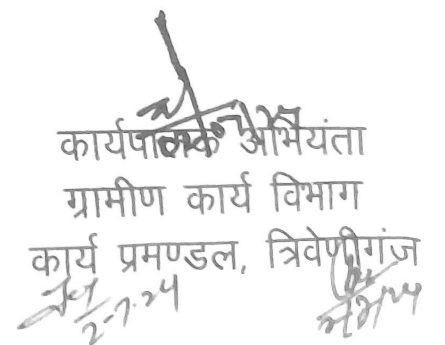 कार्यपालक अभियंता
ग्रामीण कार्य विभाग
कार्य प्रमण्डल, त्रिवेणीगंज
2-7-24